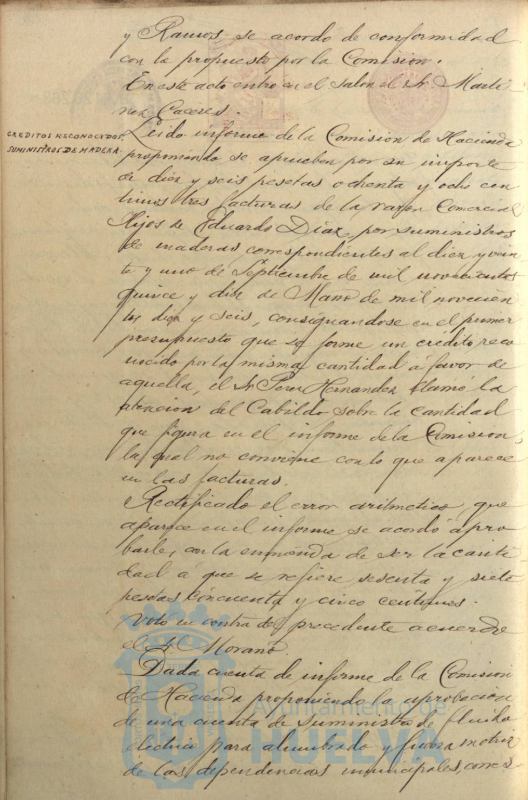 y Ramos se acordo de conformidad
con la propuesto por la Comision.
En este acto entro en el salon el Sr. Marti
nez Caceres.
CREDITOS RECONOCIDOS,
SUMINISTROS DE MADERA.
Leido informe de la Comision de Hacienda
proponiendo se aprueben por su importe
de diez y seis pesetas ochenta y ocho cen
timos tres facturas de la razon Comercial
Hijos de Eduardo Diaz, por suministros
de maderas correspondientes al diez y vein
te y uno de Septiembre de mil novecientos
quince y diez de Marzo de mil novecien
tos diez y seis, consignandose en el primer
presupuesto que se forme un credito reco
nocido por la misma cantidad á favor de
aquella, el Sr. Perez Hernandez llamó la
atencion del Cabildo sobre la cantidad
que figura en el informe de la Comision,
la qual no conviene con lo que aparece
en las facturas.
Rectificado el error aritmetico, que
aparece en el informe se acordó apro
barle, con la enmienda de ser la canti
dad á que se refiere sesenta y siete
pesetas cincuenta y cinco centimos.
Voto en contra del precedente acuerdo
el Sr. Morano.
Dada cuenta de informe de la Comision
de Hacienda proponiendo la aprobacion
de una cuenta de suministro de fluido
electrico para alumbrado y fuerza motriz
de las dependencias municipales, corres
Ayuntamiento de
HUELVA